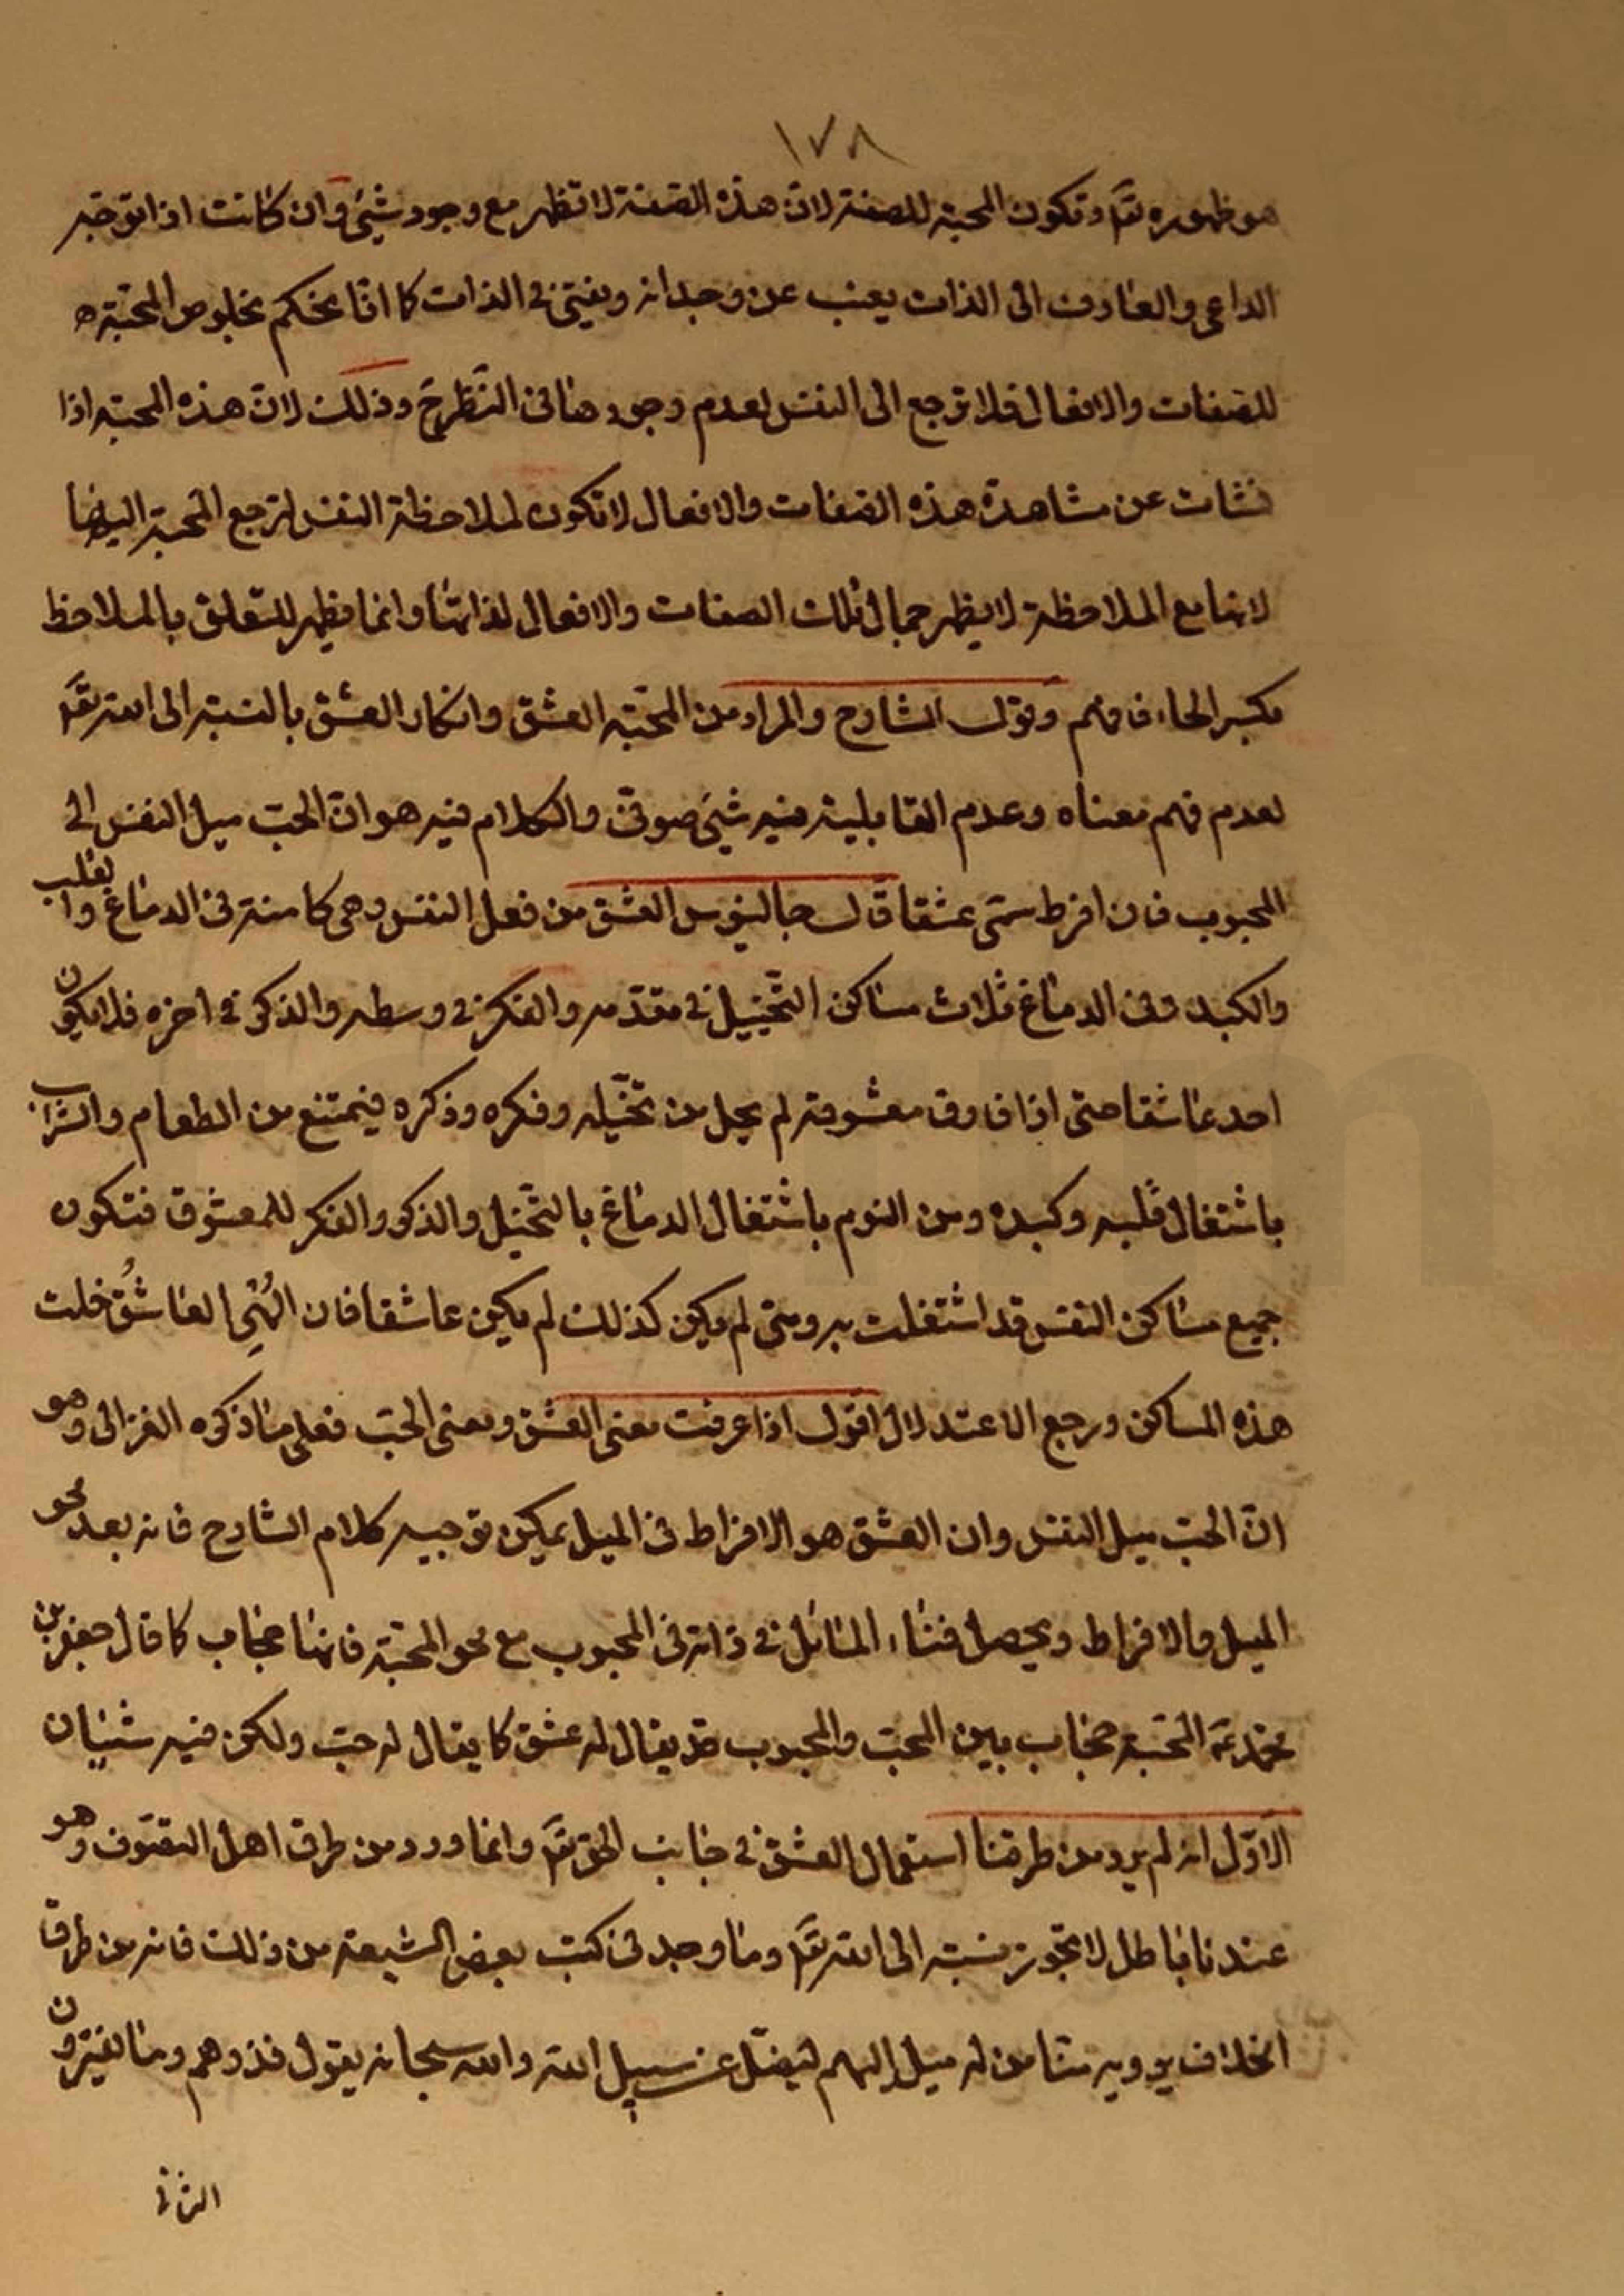 ١٧٨
هو ظهوره تعٓ وتكون المحبة للصفة لان هذه الصفة لا تظهر مع وجود شيئ وان كانت اذا توجه
الداعي والعارف الى الذات يغيب عن وجدانه ويفنى في الذات كما انّا نحكم بخلوص المحبّة
للصفات والافعال فلا ترجع الى النفس لعدم وجودها في النظر ح وذلك لان هذه المحبة اذا
نشات عن مشاهدة هذه الصفات والافعال لا تكون لملاحظة النفس لترجع المحبة اليها
لانها مع الملاحظة لا يظهر جمال تلك الصفات والافعال لذاتها وانما يظهر للتعلق بالملاحظ
بكسر الحاء فافهم وقول الشارح والمراد من المحبّة العشق وانكار العشق بالنسبة الى الله تعٓ
لعدم فهم معناه وعدم القابلية فيه شيئ صوفي والكلام فيه هو انّ الحبّ ميل النفس الى
المحبوب فان افرط سمّى عشقا قال جالينوس العشق من فعل النفس وهي كامنة في الدماغ والقلب
والكبد وفي الدماغ ثلاث مساكن التخييل في مقدّمه والفكر في وسطه والذكر في اخره فلا يكون
احد عاشقا حتى اذا فارق معشوقه لم يخل من تخيّله وفكره وذكره فيمتنع من الطعام والشراب
باشتغال قلبه وكبده ومن النوم باشتغال الدماغ بالتخيّل والذكر والفكر للمعشوق فتكون
جميع مساكن النفس قد اشتغلت به ومتى لم يكن كذلك لم يكن عاشقا فان اُلهِيَ العاشقُ خلت
هذه المساكن ورجع الاعتدلال اقول اذا عرفت معنى العشق ومعنى الحبّ فعلى ما ذكره الغزالي وهو
انّ الحبّ ميل النفس وان العشق هو الافراط في الميل يمكن توجيه كلام الشارح فانه بعد محو
الميل والافراط ويحصل فناء المائل في ذاته في المحبوب مع محو المحبّة فانها حجاب كما قال جعفر بن
محمد عٓ المحبّة حجاب بين المحبّ والمحبوب قد يقال له عشق كما يقال له حبّ ولكن فيه شيئان
الاوّل انه لم يرد من طرقنا استعمال العشق في جانب الحق تعٓ وانما ورد من طرق اهل التصوّف وهو
عندنا باطل لا تجوز نسبته الى الله تعٓ وما وجد في كتب بعض الشيعة من ذلك فانه من طرق
الخلاف يرويه منا من له ميل اليهم ليضلّ عن سبيل الله والله سبحانه يقول فذرهم وما يفترون
الثاني